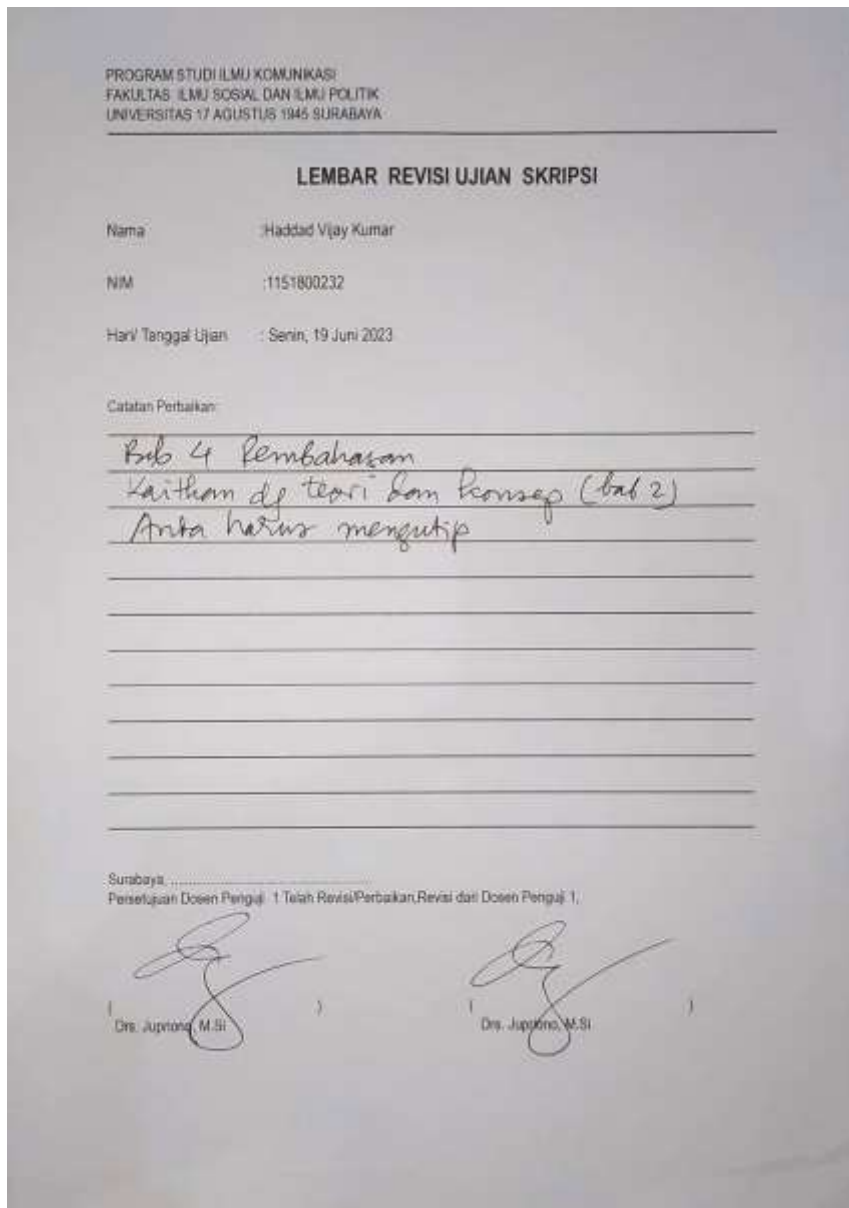 PROGRAM STUDI ILMU KOMUNIKASI
FAKULTAS ILMU SOSIAL DAN ILMU POLITIK
UNIVERSITAS 17 AGUSTUS 1945 SURABAYA
LEMBAR REVISI UJIAN SKRIPSI
Nama :Haddad Vijay Kumar
NIM :1151800232
Hari/ Tanggal Ujian : Senin, 19 Juni 2023
Catatan Perbaikan:
Bab 4 Pembahasan
Kaitkan dg teori dan konsep (bab 2)
Anda harus mengutip
Surabaya, ..........................................
Persetujuan Dosen Penguji 1 Telah Revisi/Perbaikan,Revisi dari Dosen Penguji 1,
( ) ( )
Drs. Jupriono, M.Si Drs. Jupriono, M.Si